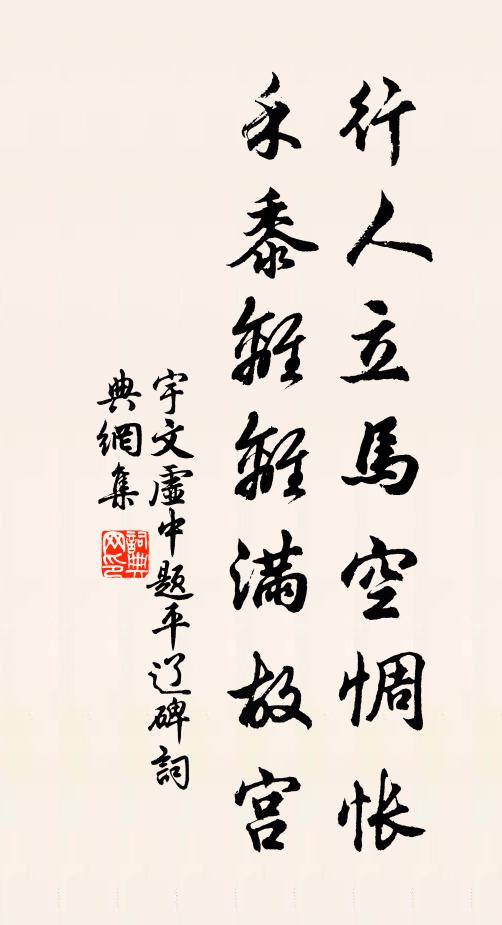 行人立馬空惆悵
禾黍離離滿故宮
宇文虛中題平辽碑詞
典網集
詞典网印